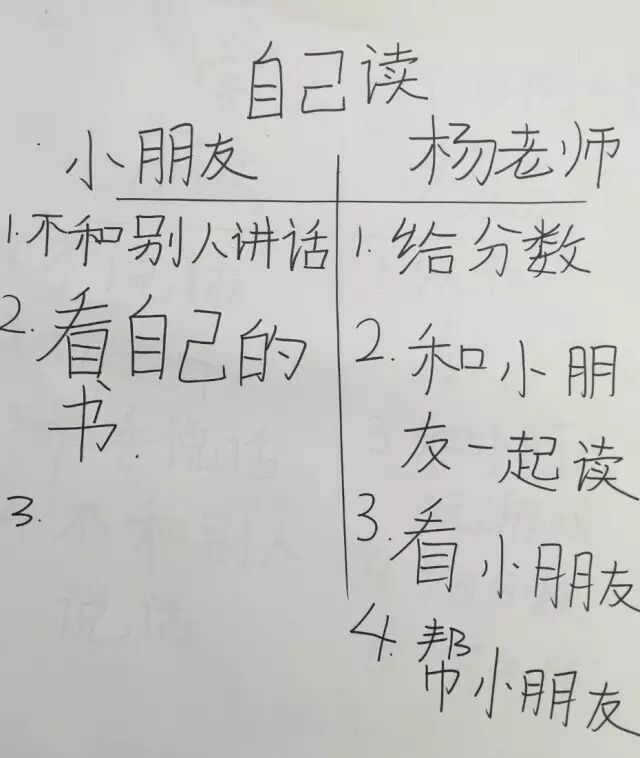 自己读
小朋友
杨老师
1. 不和别人讲话
2. 看自己的
书.
3.
1. 给分数
2. 和小朋
友一起读
3. 看小朋友
4. 帮小朋友